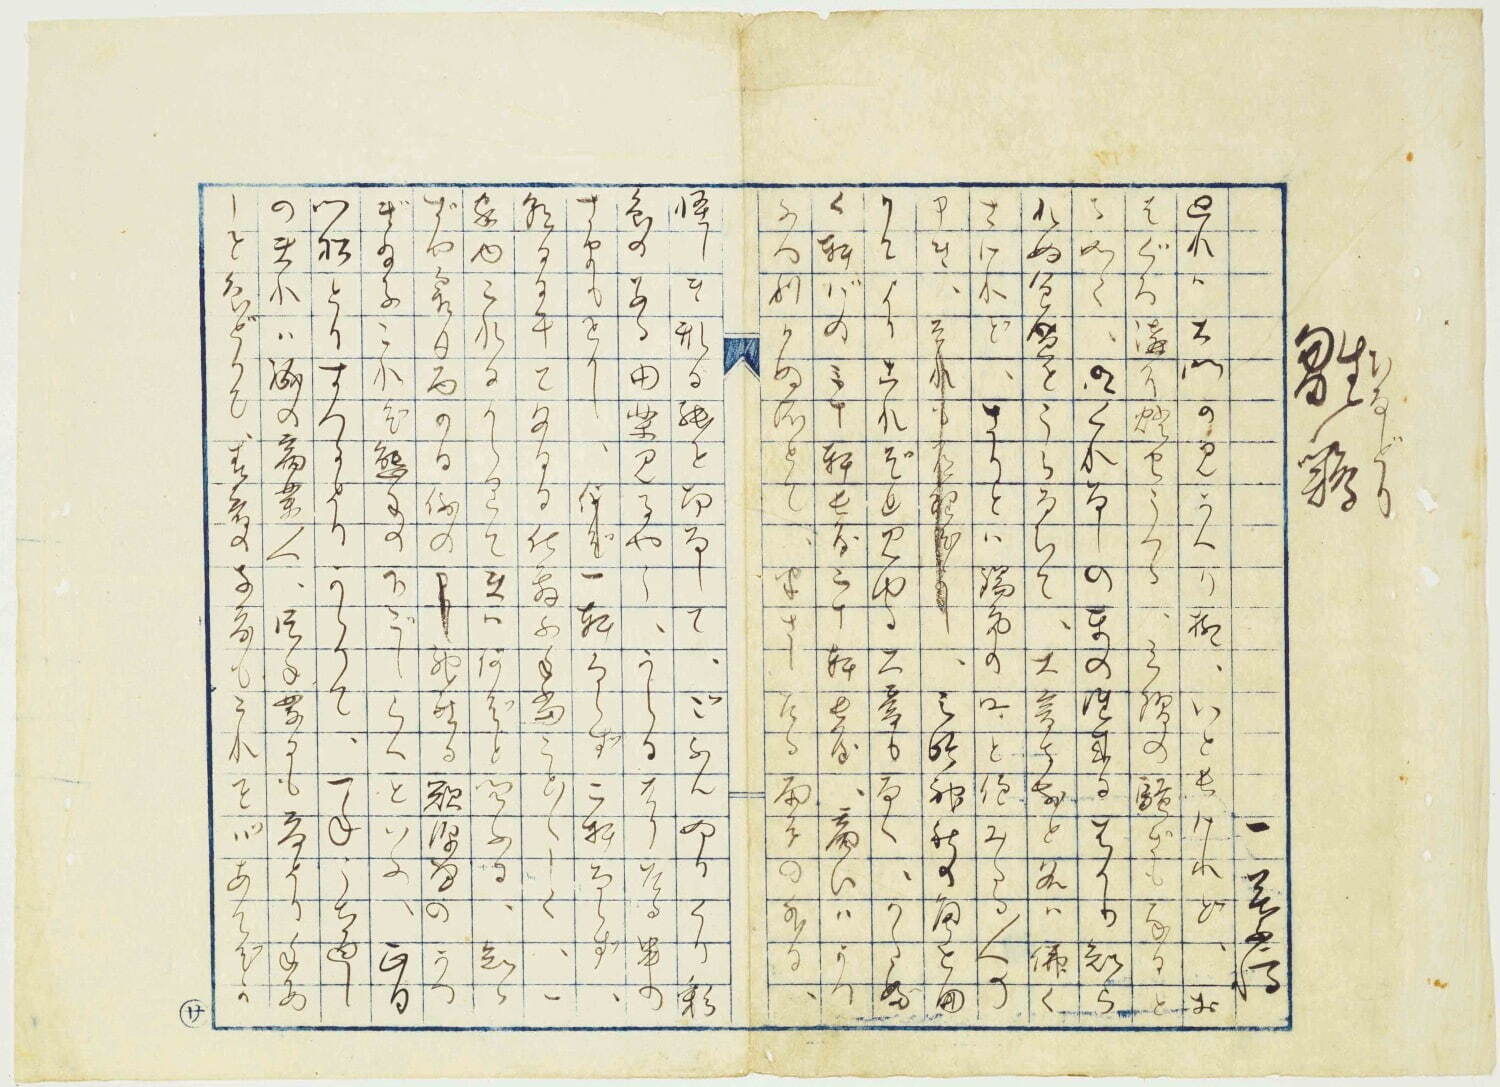 雛鶏
ひなどり
一葉
廻れハ大門の見かへり柳、いと長けれど、お
はぐろ溝に燈火うつる、三階の騒ぎも手にと
る如く、明くれなしの車の往来にはかり知ら
れぬ全盛をうらなひて、大音寺前と名ハ佛く
さけれど、さりとハ陽気の町と住みたる人の
申き、三嶋神社の角を曲
りてよりこれぞと見ゆる大厦もなく、かたぶ
く軒ばの三十軒長屋二十軒長屋、商ひハかつ
ふつ利かぬ所とて、半さしたる雨戸の外に、
怪しき形に紙を切なして、ごふんぬりくり彩
色のある田楽見るやう、うらにはりたる串の
さまもをかし、一軒ならず二軒ならず、
朝日に干て夕日に仕舞ふ手当こと〲しく、一
家内これにかゝりて夫ハ何ぞと問ふに、知ら
ずや霜月酉の日例の神社に欲深様のかつ
ぎ給ふこれぞ熊手の下ごしらへといふ、正月
門松とりすつるよりかゝりて、一年うち通し
の夫れハ誠の商業人、片手業にも夏より手あ
しを色どりて、春着の支度もこれをバあてぞか